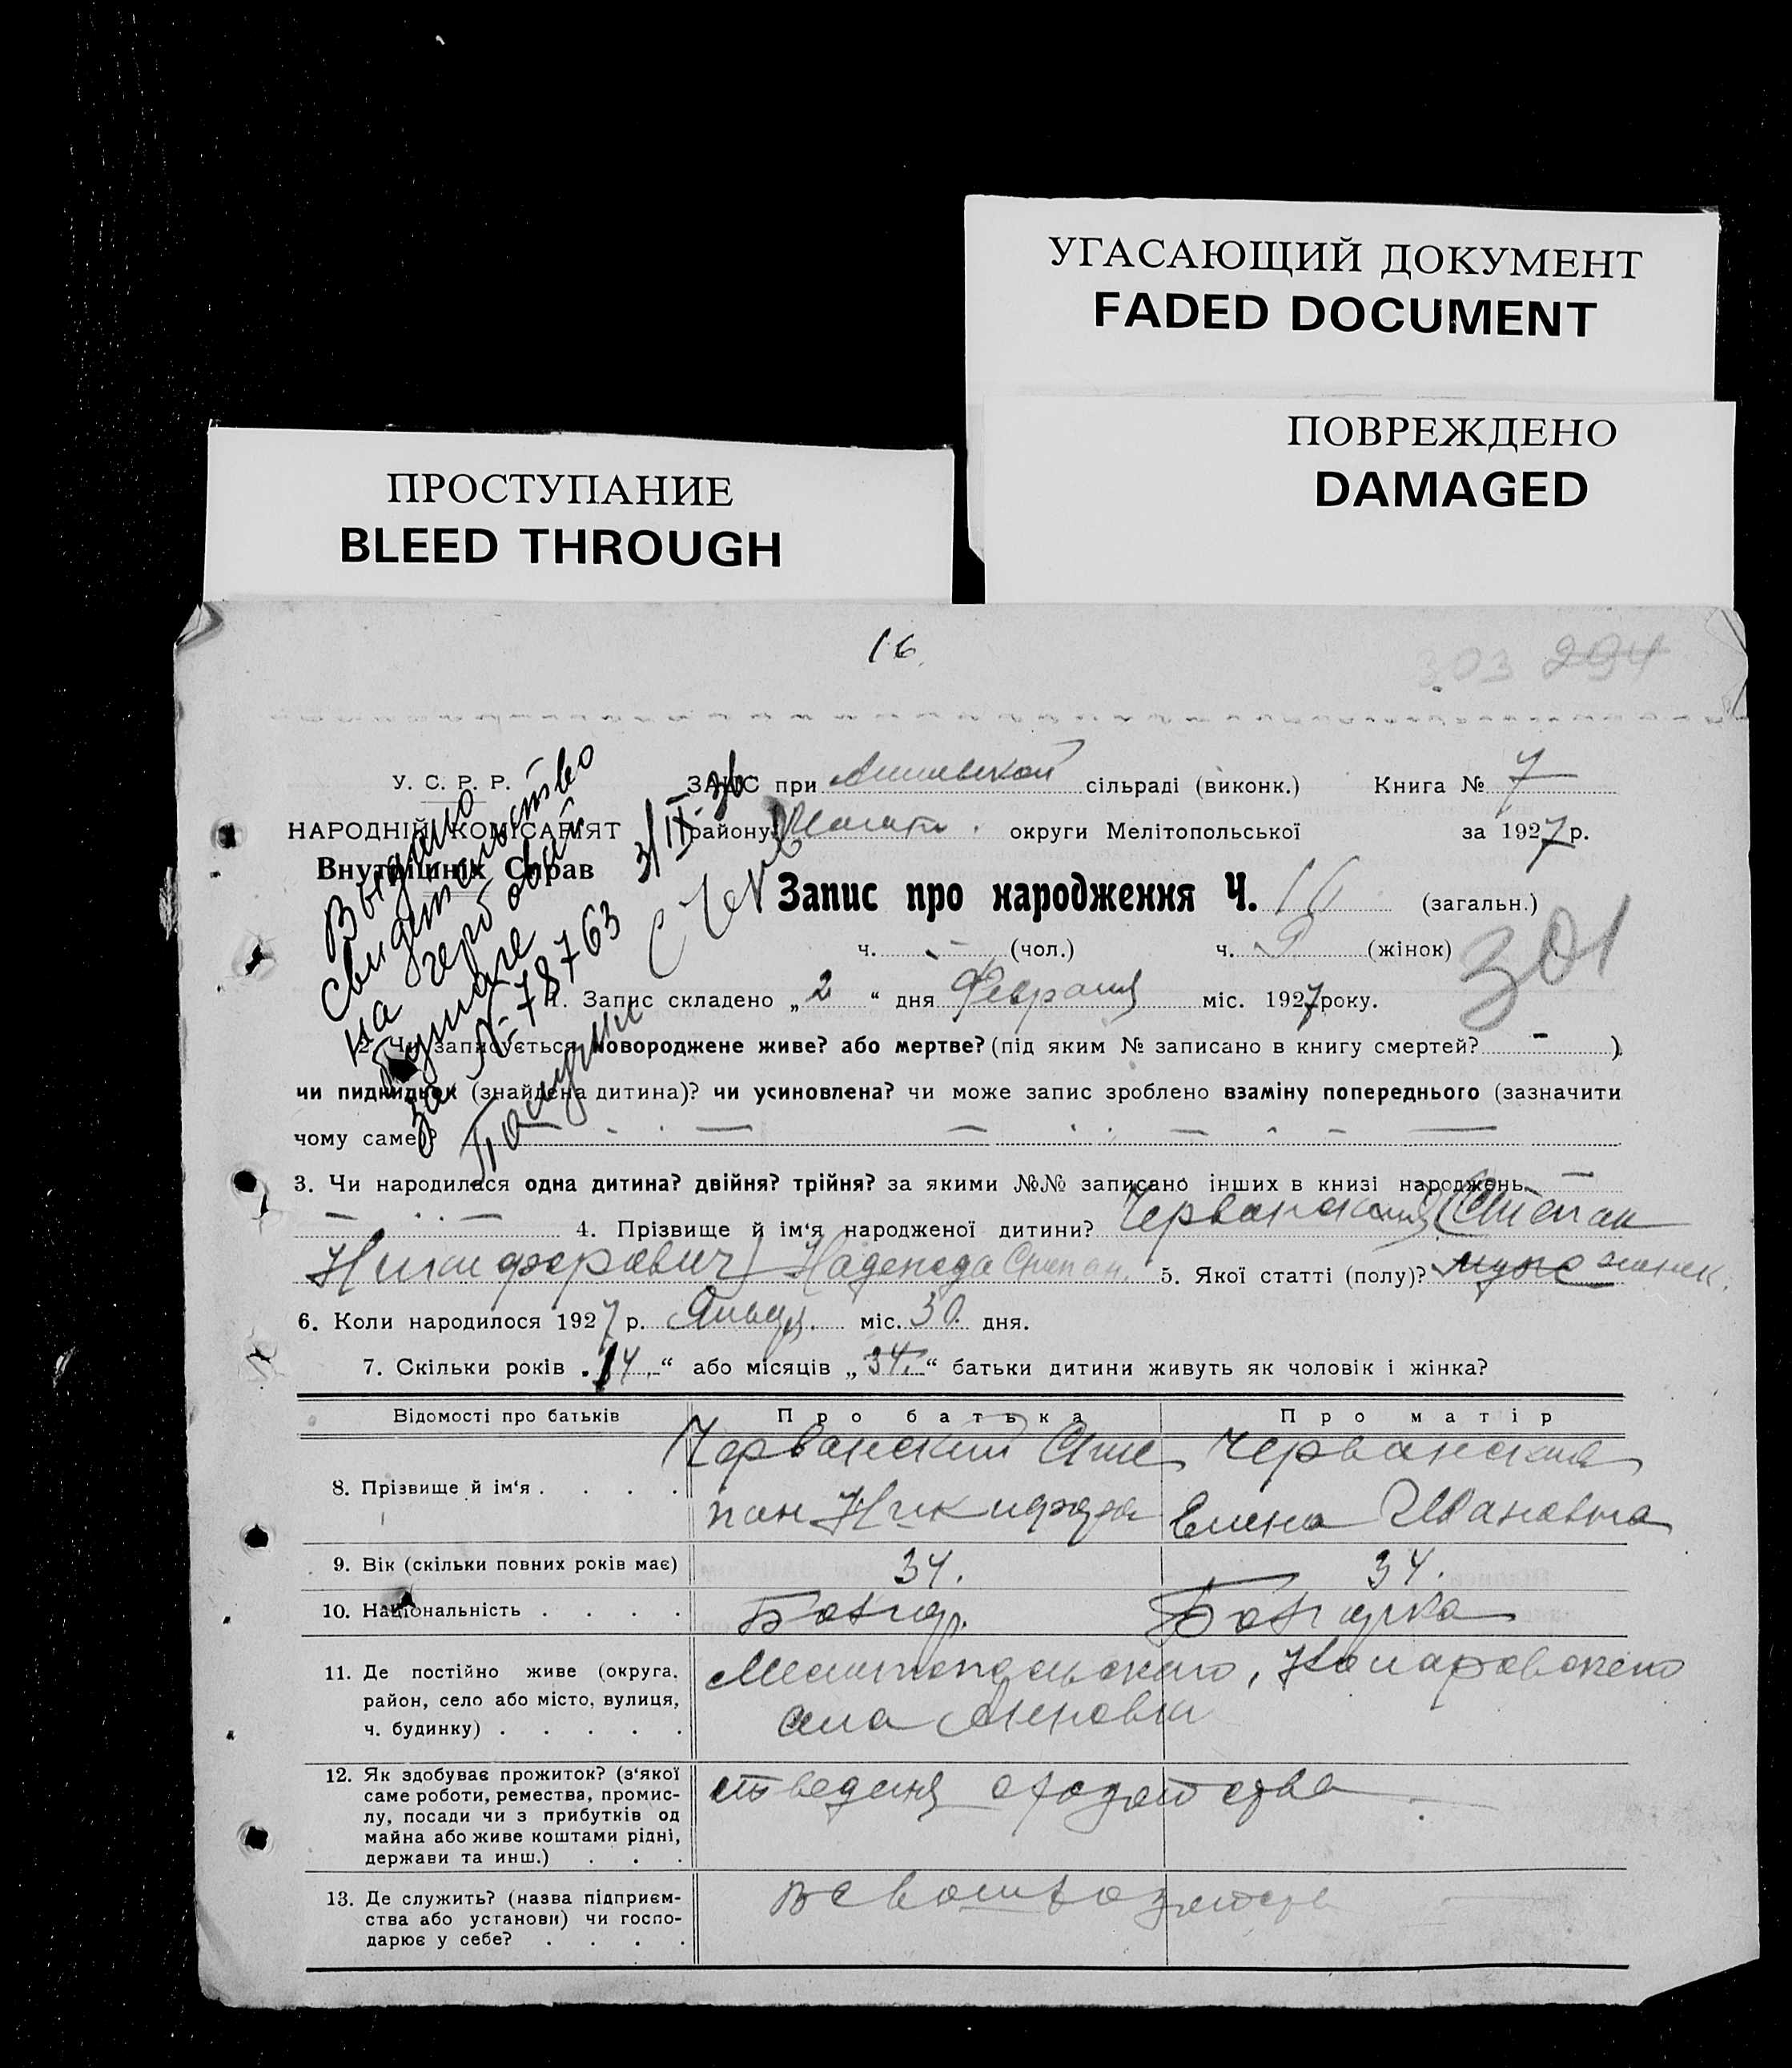 УГАСАЮЩИЙ ДОКУМЕНТ
FADED DOCUMENT
ПОВРЕЖДЕНО
DAMAGED
ПРОСТУПАНИЕ
BLEED THROUGH
16.
303 294
У. С. Р. Р.
НАРОДНІЙ КОМІСАРІЯТ
Внутрішніх Справ
Выдано
свидетельство
на гербовой
бумаге
за № 78763
3/IX-36
ЗАПИС при сільраді (виконк.) Книга № 7
району округи Мелітопольської за 1927 р.
Запис про народження Ч. 16 (загальн.)
ч. - (чол.) ч. 9 (жінок)
301
1. Запис складено „2“ дня Февраля міс. 1927 року.
2. Чи записується новороджене живе? або мертве? (під яким № записано в книгу смертей? - )
чи пидкидьок (знайдена дитина)? чи усиновлена? чи може запис зроблено взаміну попереднього (зазначити
чому саме)?
3. Чи народилася одна дитина? двійня? трійня? за якими №№ записано інших в книзі народжень
4. Прізвище й ім‘я народженої дитини? Черванская (Степан
Никифорович) Надежда Степан. 5. Якої статті (полу)? муже женск.
6. Коли народилося 1927 р. Январ. міс. 30. дня.
7. Скільки років „14.“ або місяців „34.“ батьки дитини живуть як чоловік і жінка?
Відомості про батьків Про батька Про матір
8. Прізвище й ім‘я . . . . Червански Сте Черванская
пан Никифоро Елена Ивановна
9. Вік (скільки повних років має) 34. 34.
10. Національність . . . . Болгар. Болгарка
11. Де постійно живе (округа, район, село або місто, вулиця, ч. будинку) . . . . .
Мелитопольского,
села Анновки
12. Як здобуває прожиток? (з‘якої саме роботи, ремества, промислу, посади чи з прибутків од майна або живе коштами рідні, держави та инш.) . . .
13. Де служить? (назва підприємства або установи) чи господарює у себе? . . . .